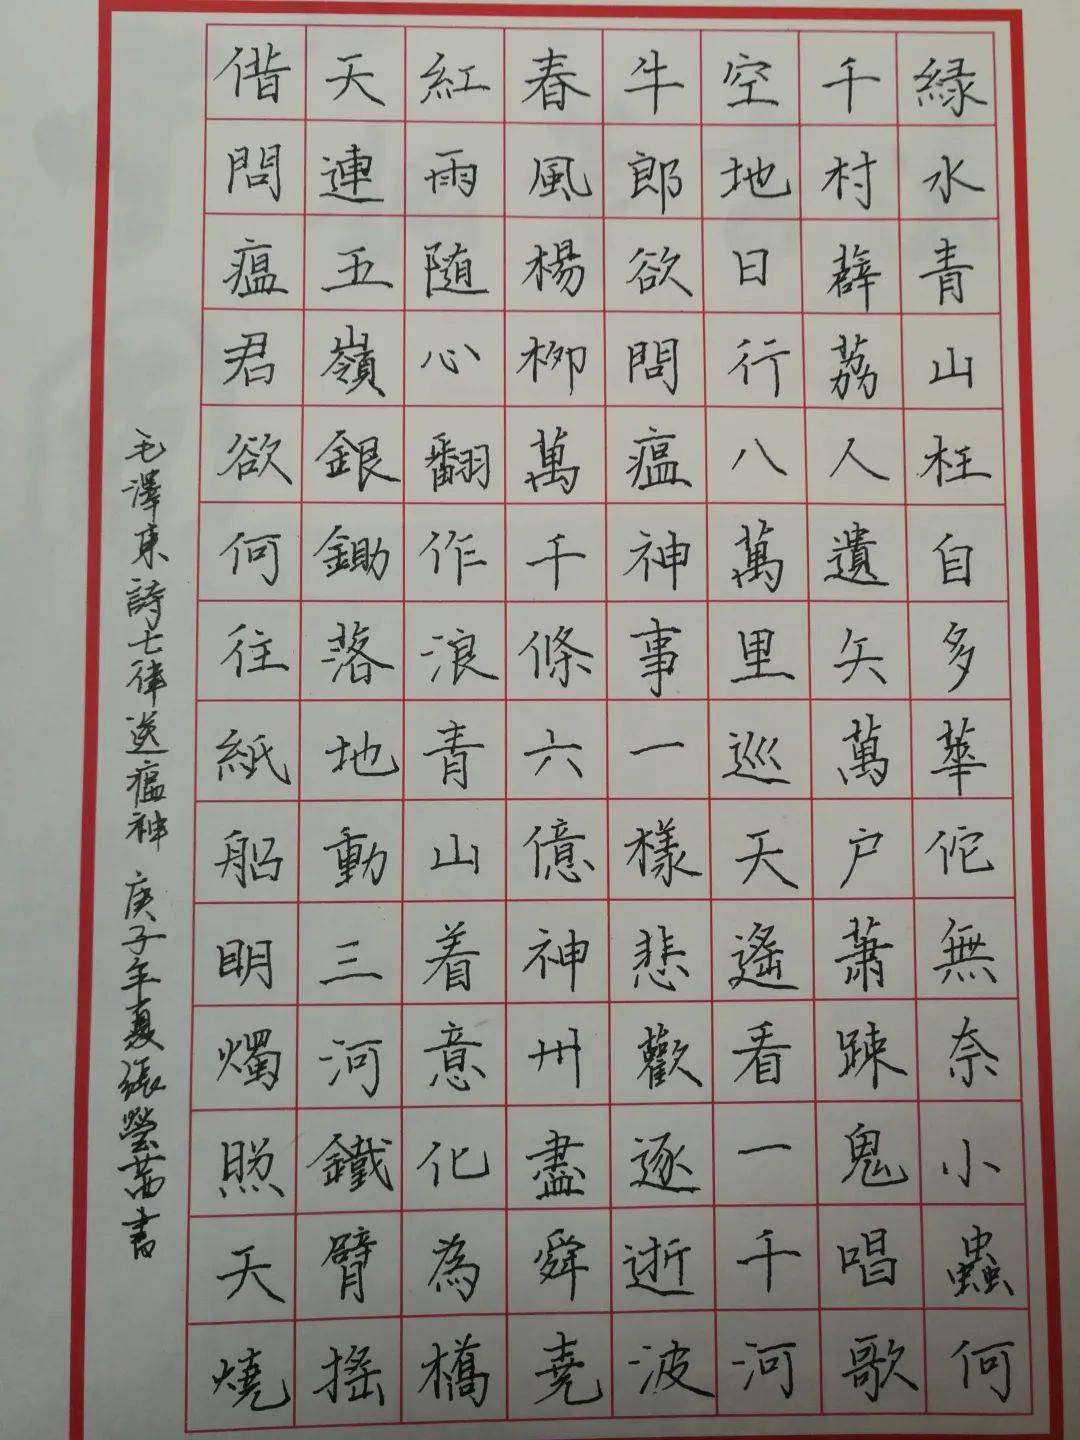 緑水青山枉自多華佗無奈小蟲何
千村薜荔人遺矢萬户蕭踈鬼唱歌
空地日行八萬里巡天遙看一千河
牛郎欲問瘟神事一樣悲歡逐逝波
春風楊柳萬千條六億神州盡舜堯
紅雨随心翻作浪青山着意化為橋
天連五嶺銀鋤落地動三河鐵臂搖
偕問瘟君欲何往紙船明燭照天燒
毛澤東詩七律送瘟神 庚子年夏張瑩茜書